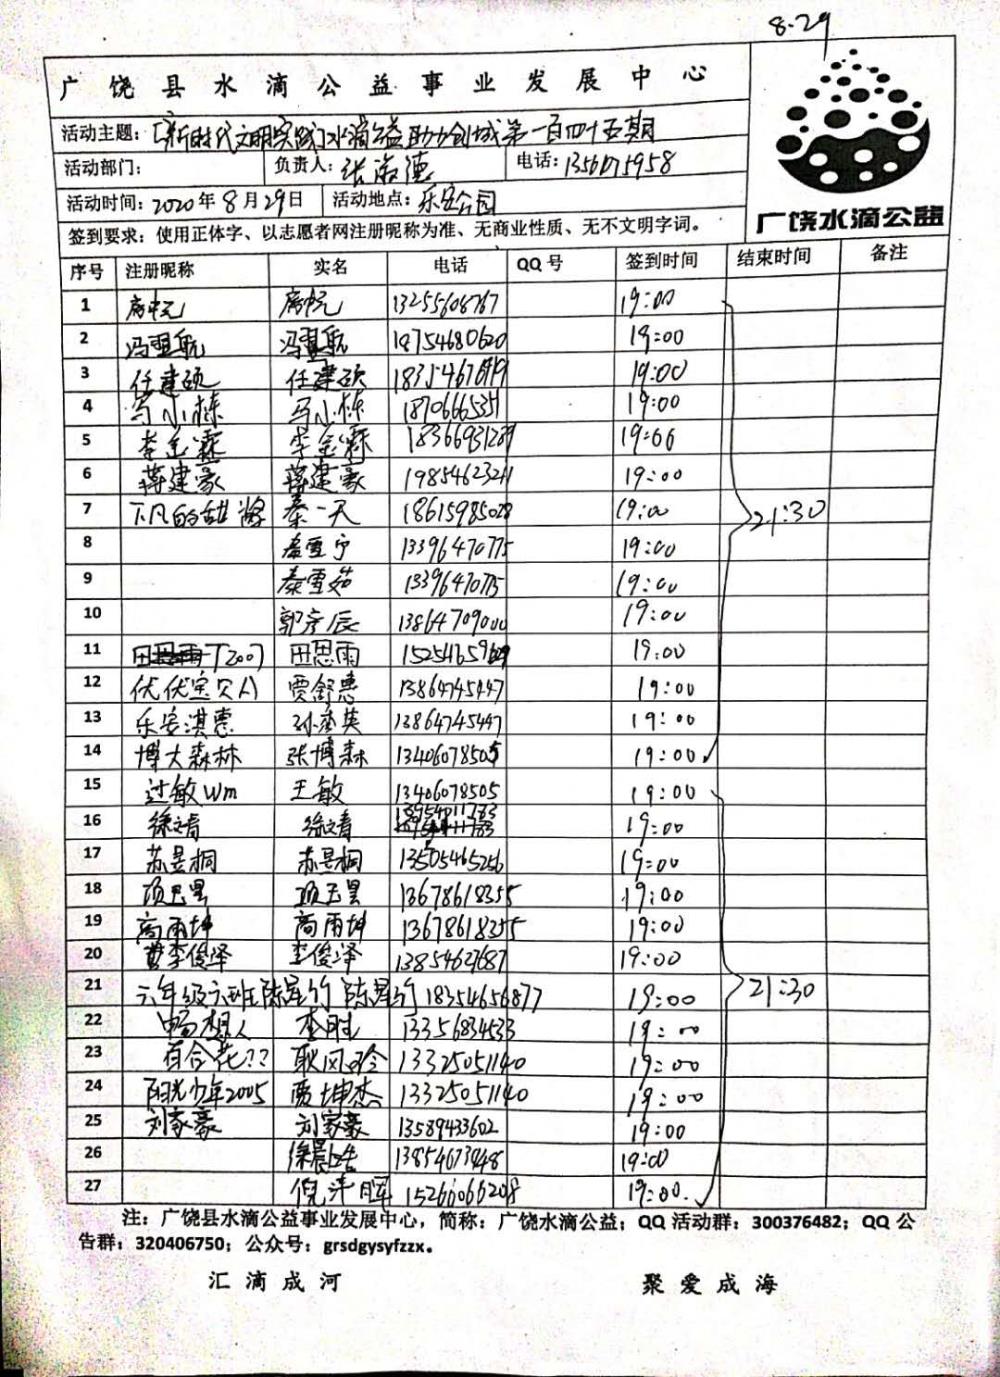 8.29
广饶县水滴公益事业发展中心
活动主题：[新时代文明实践]水滴公益助力创城第一百四十五期
活动部门： 负责人：张海德 电话：
活动时间：2020年8月29日 活动地点：乐安公园
广饶水滴公益
签到要求：使用正体字、以志愿者网注册昵称为准、无商业性质、无不文明字词。
序号 注册昵称 实名 电话 QQ号 签到时间 结束时间 备注
1 19:00
2 冯盟航 冯盟航 18754680620 19:00
3 任建硕 任建硕 19:00
4 马小栋 马小栋 19:00
5 李金霖 李金霖 19:00
6 蒋建豪 蒋建豪 19:00
7 下凡的甜酱 秦一天 18615985028 19:00 21:30
8 秦雪宁 13396470775 19:00
9 秦雪茹 13396470775 19:00
10 郭彦辰 13864709000 19:00
11 田思雨 19:00
12 优优宝贝人 贾舒惠 13864745447 19:00
13 乐安淇惠 孙秀英 13864745447 19:00
14 博大森林 张博森 13406078505 19:00
15 过敏wm 王敏 13406078505 19:00
16 徐文青 徐文青 19:00
17 苏昱桐 苏昱桐 13505465256 19:00
18 13678618355 19:00
19 高雨坤 高雨坤 13678618355 19:00
20 李俊泽 李俊泽 13854627687 19:00
21 六年级六班陈星竹 陈星竹 18354656877 19:00 21:30
22 畅想人 李胜 13356834533 19:00
23 百合花?? 耿风玲 13325051140 19:00
24 阳光少年2005 贾坤杰 13325051140 19:00
25 刘家豪 刘家豪 13589433602 19:00
26 徐晨皓 13854673948 19:00
27 倪泽晖 15266066208 19:00.
注：广饶县水滴公益事业发展中心，简称：广饶水滴公益；QQ活动群：300376482；QQ公
告群：320406750；公众号：grsdgysyfzzx。
汇滴成河 聚爱成海